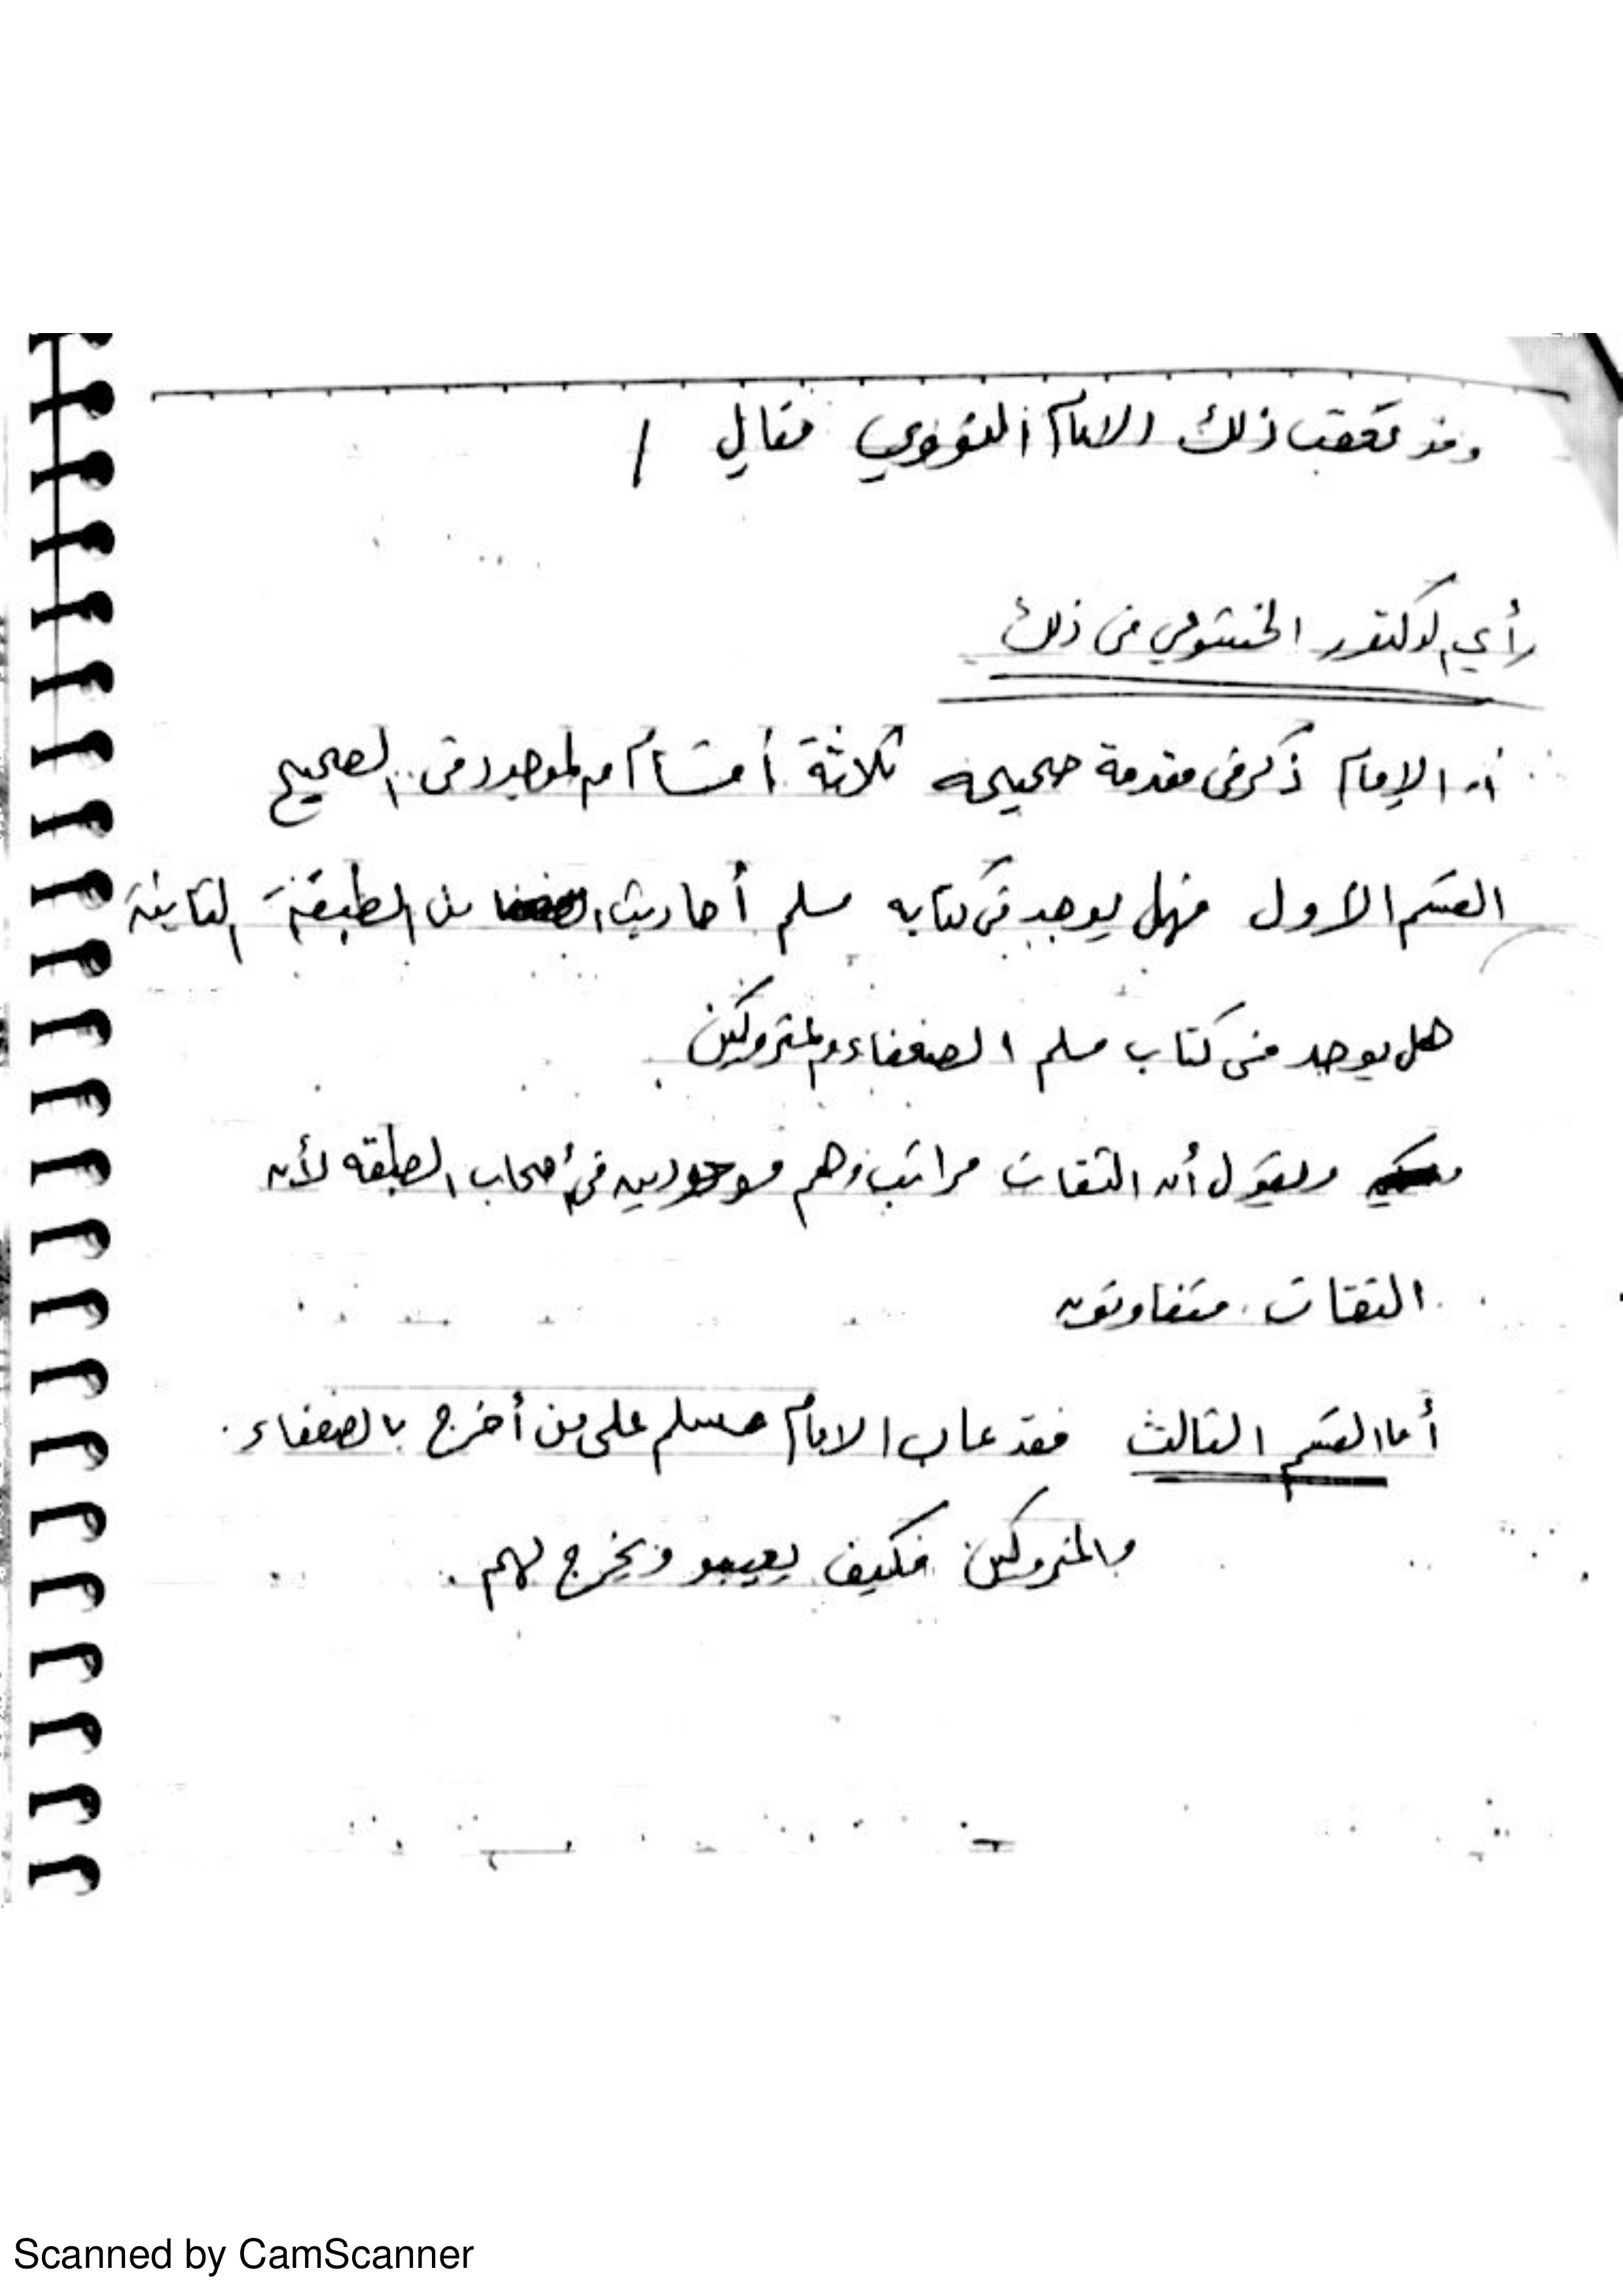 وقد تعقب ذلك الامام النووي فقال /
رأي الدكتور الخشوعي في ذلك
أن الإمام ذكر في مقدمة صحيحه ثلاثة أقسام من الموجود في الصحيح
القسم الأول فهل يوجد في كتابه مسلم أحاديث من الطبقة الثانية
هل يوجد في كتاب مسلم الضعفاء والمتروكين
ويقول أن الثقات مراتب وهم موجودين في أصحاب الطبقه لأن
الثقات متفاوتون
أما القسم الثالث فقد عاب الامام مسلم على من أخرج بالضعفاء
والمتروكين فكيف يعيب ويخرج لهم .
Scanned by CamScanner